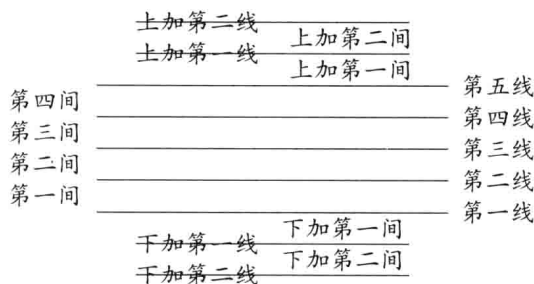 上加第二线
上加第二间
上加第一线
上加第一间
第五线
第四间
第四线
第三间
第三线
第二间
第二线
第一间
第一线
下加第一间
下加第一线
下加第二间
下加第二线